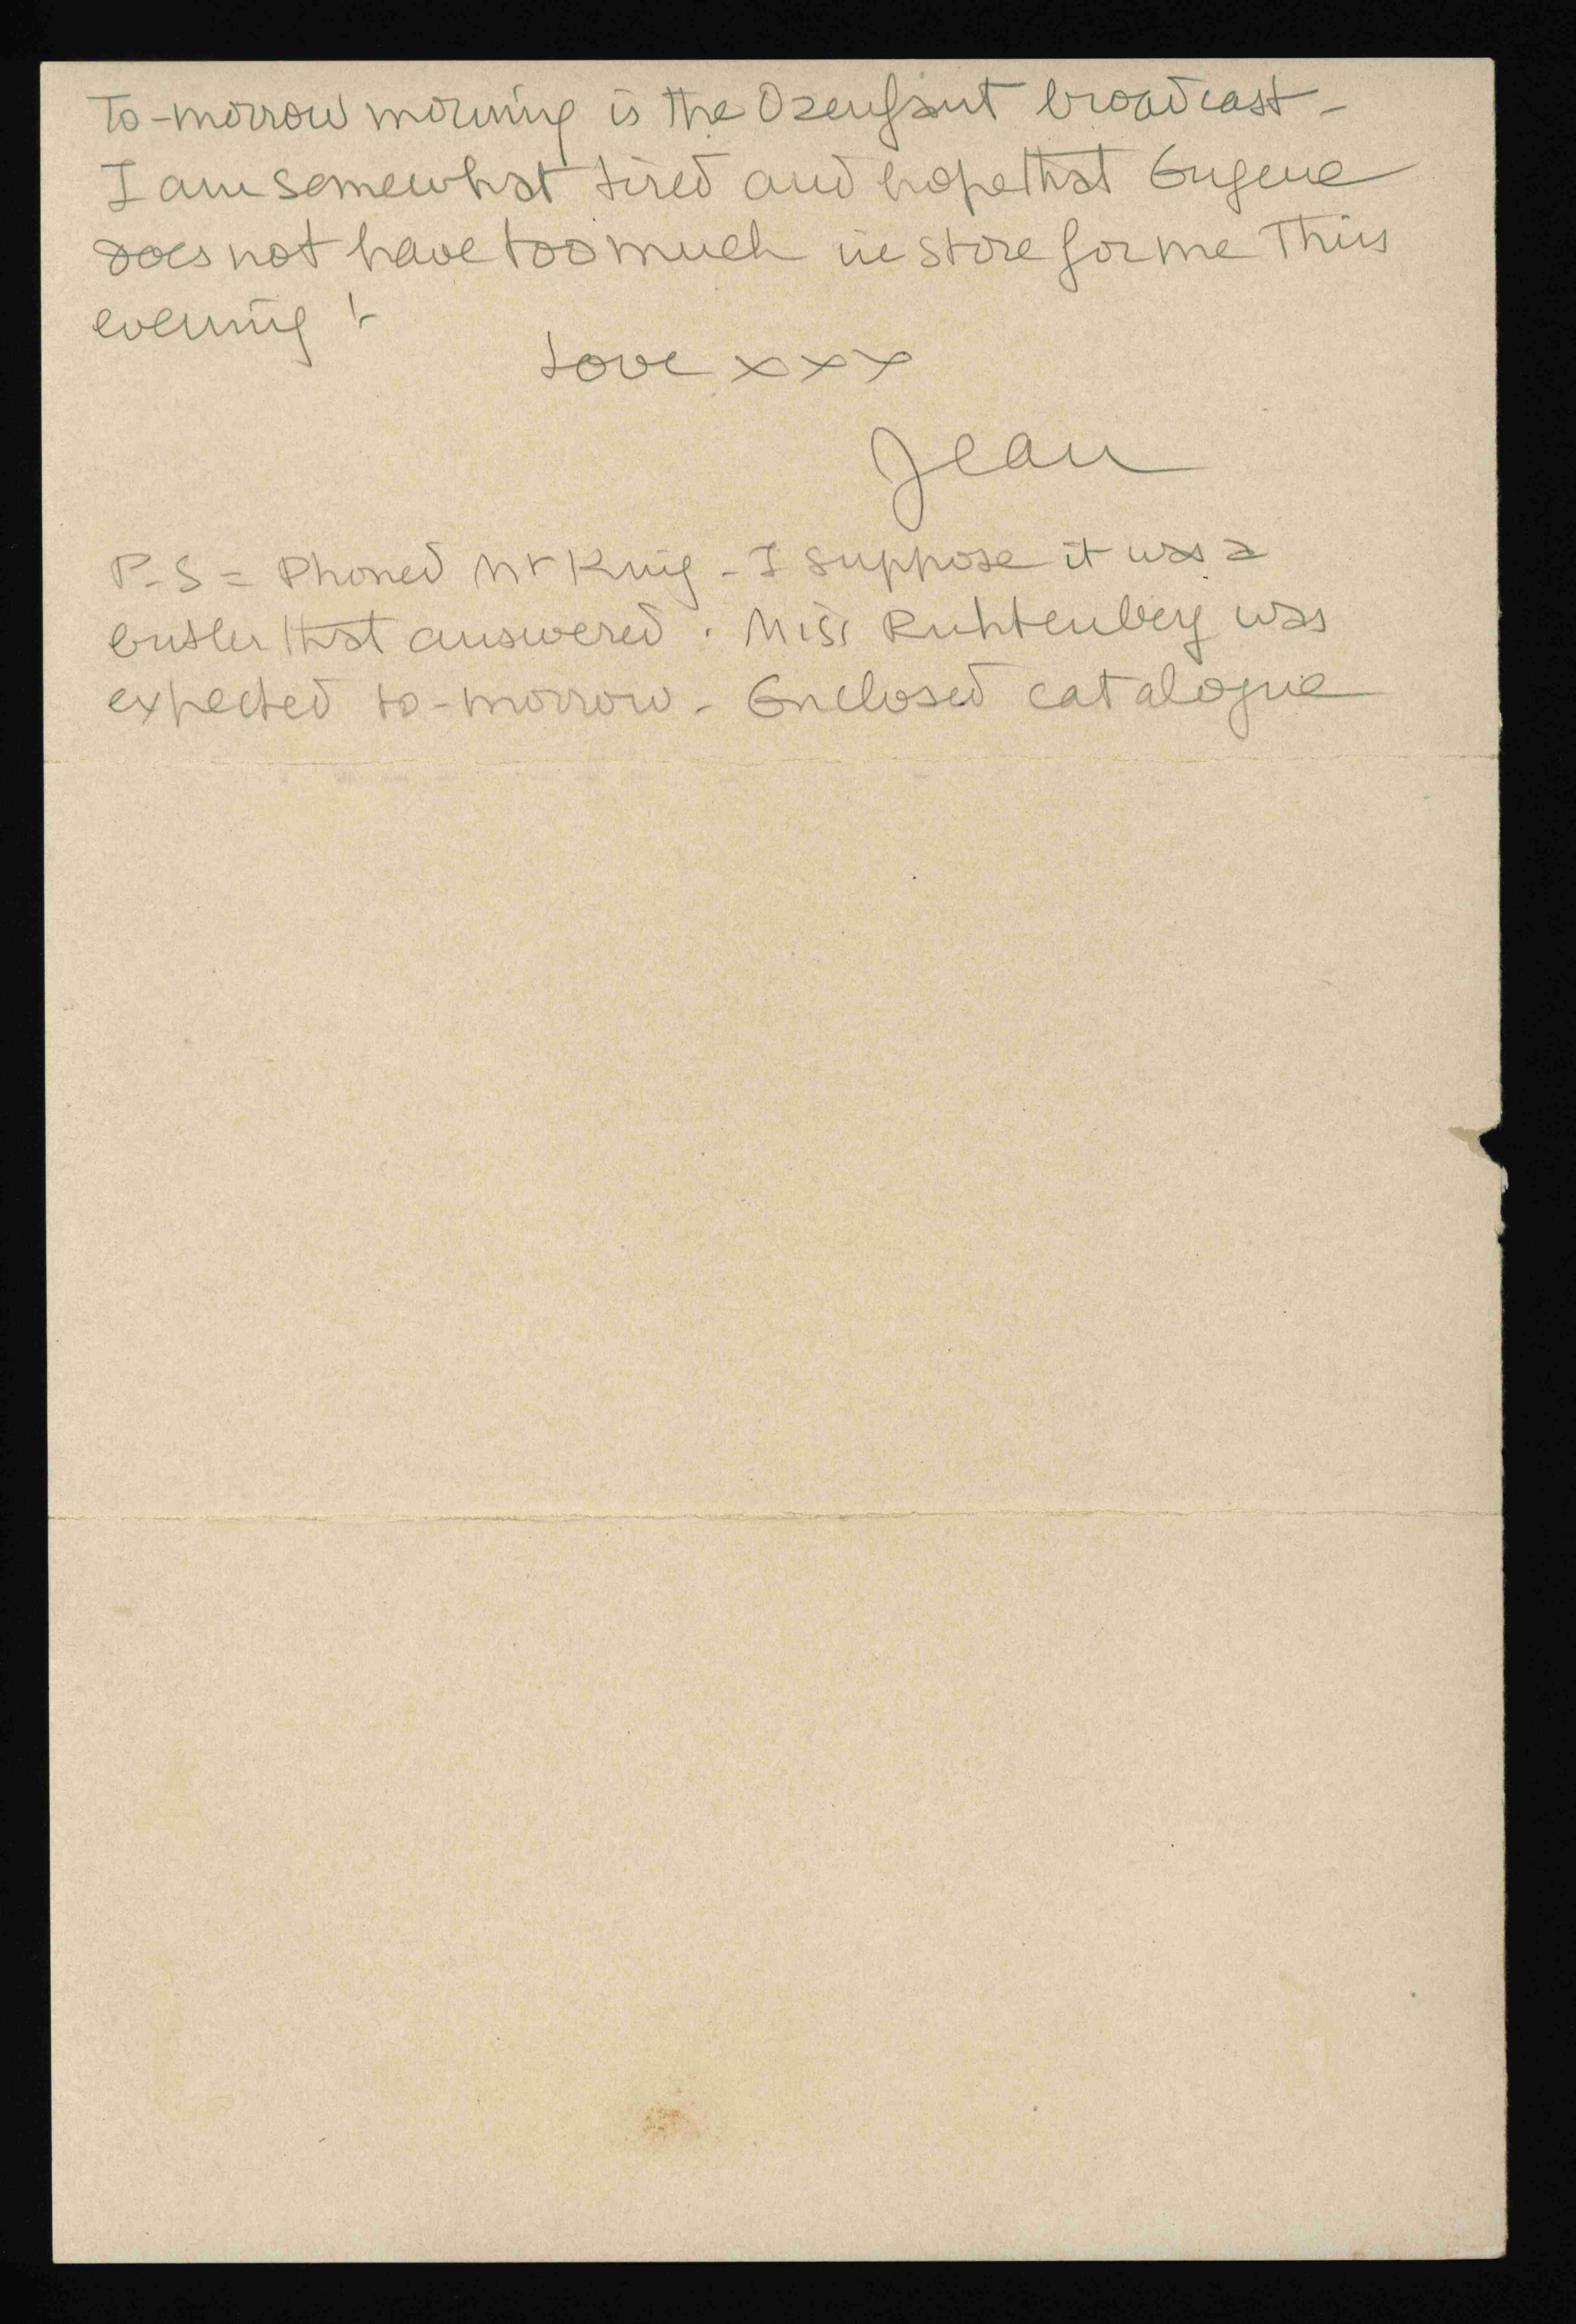 To-morrow morning is the Ozenfant broadcast -
I am somewhat tired and hope that Eugene
does not have too much in store for me this
evening !-
Love xxx
Jean
P-S = Phoned Mr King - I suppose it was a
butler that answered. Miss Ruhtenberg was
expected to-morrow - Enclosed catalogue